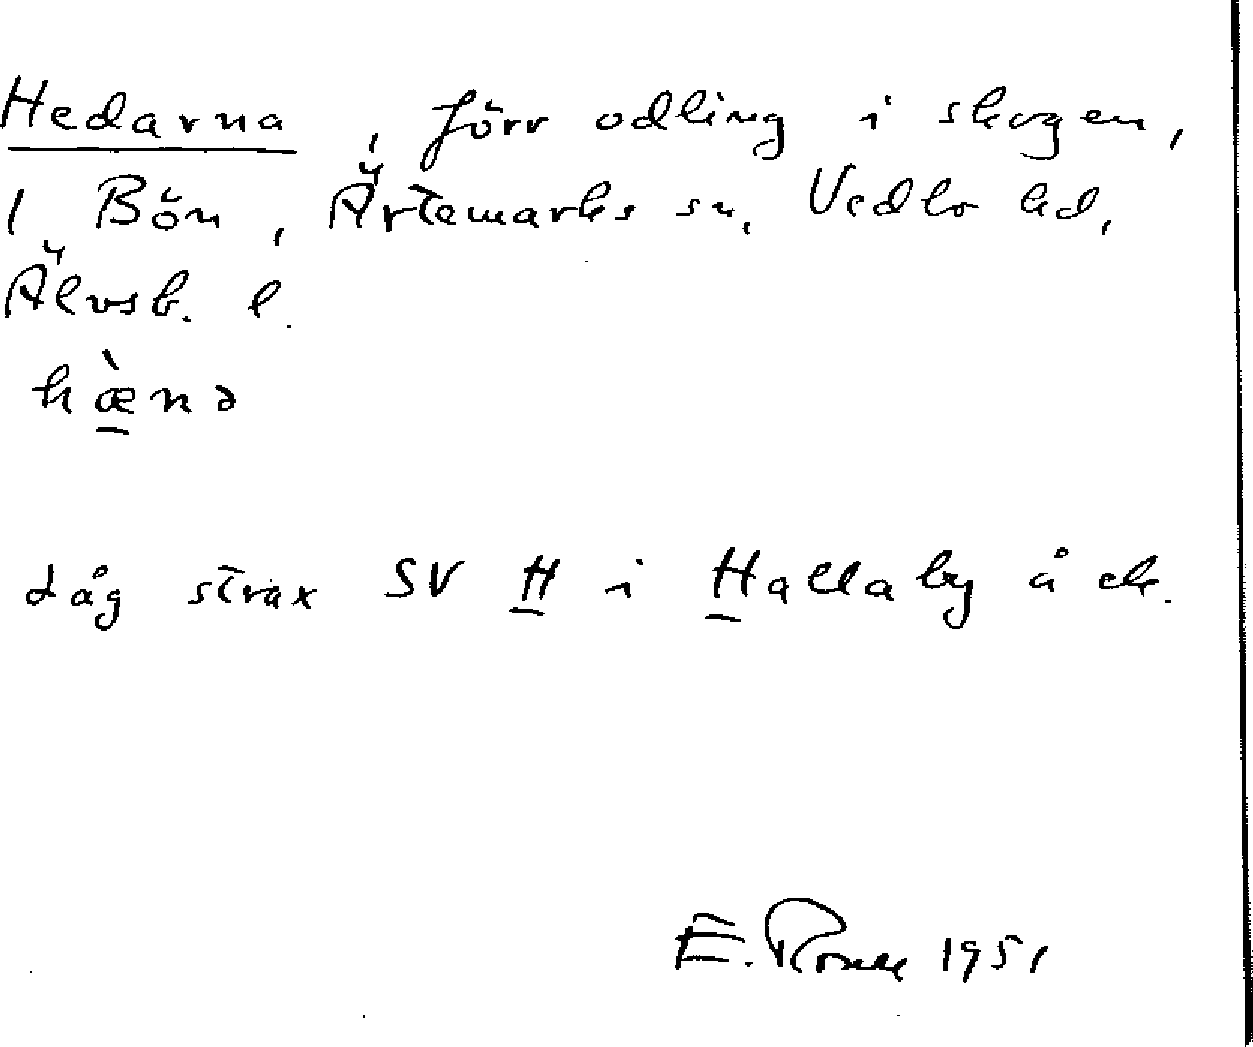 Hedarna, förr odling i skogen,
I Bön, Ärtemarks sn, Vedbo hd,
Älvsb. l.
hæ̀nə
Låg strax SV H i Hallaby å ek.
E. 1951